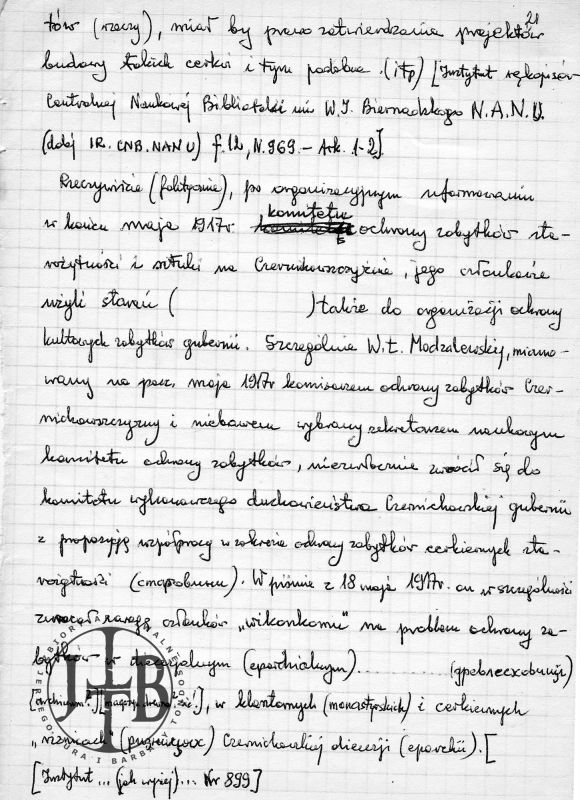 21
tów (rzeczy), miał by prawo zatwierdzania projektów
budowy takich cerkwi i tym podobne (itp) [Instytut rękopisów
Centralnej Naukowej Biblioteki im W.I. Biernadskiego N.A.N.U.
(dalej IR. CNB. NAN U) f. 12, N. 969. – Ark. 1-2]
Rzeczywiście (faktycznie), po organizacyjnym uformowaniu
w końcu maja 1917r. komitetu ochrony zabytków sta-
rożytności i sztuki na Czernihowszczyźnie, jego członkowie
użyli starań ( ) także do organizacji ochrony
kultowych zabytków gubernii. Szczególnie W.Ł. Modzalewskij, miano-
wany na pocz. maja 1917r komisarzem ochrony zabytków Czer-
nichowszczyzny i niebawem wybrany sekretarzem naukowym
komitetu ochrony zabytków, niezwłocznie zwrócił się do
komitetu wykonawczego duchowieństwa Czernichowskiej gubernii
z propozycją współpracy w zakresie ochrony zabytków cerkiewnych sta-
rożytności (старовини). W piśmie z 18 maja 1917r. on w szczególności
zwracał uwagę członków „wikonkomu" na problem ochrony za-
bytków w diecezjalnym (eparchialnym) .......... (древлесховищі)
archiwum?, [magazyn], w klasztornych (monastyrskich) i cerkiewnych
„ryznicach" (ризницях) Czernichowskiej diecezji (eparchii). [
[Instytut ... (jak wyżej) ... Nr 899]
JTB